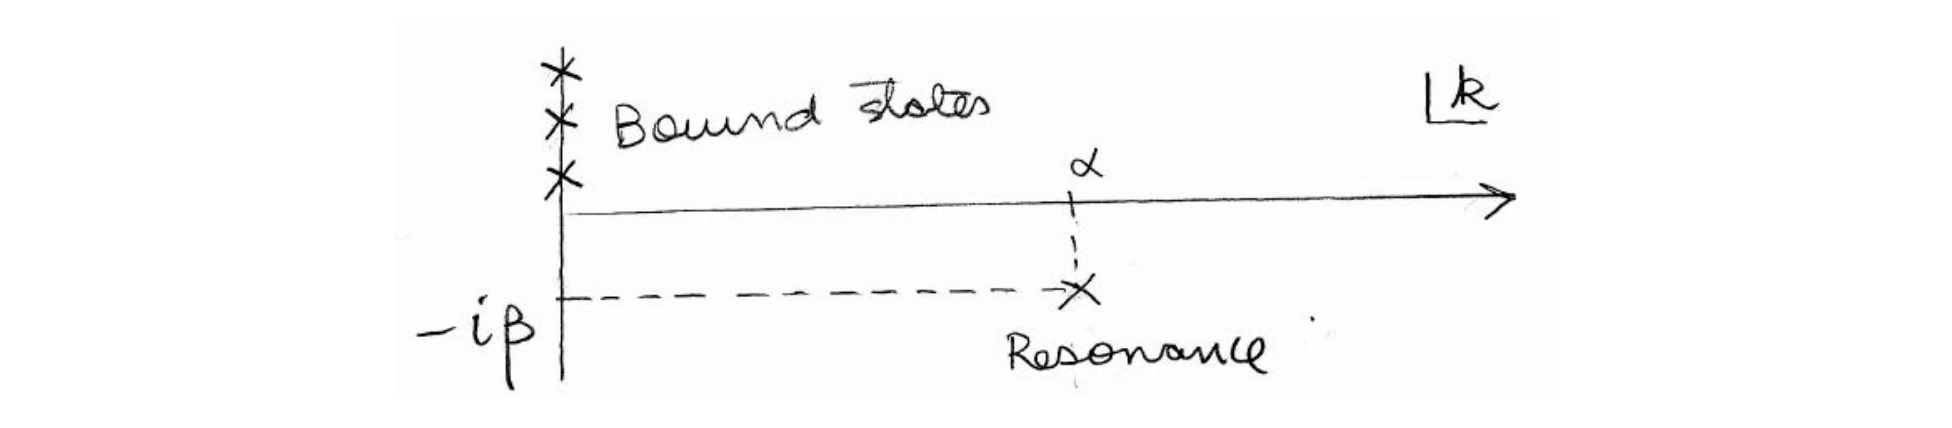 Bound states
k
α
-iβ
Resonance